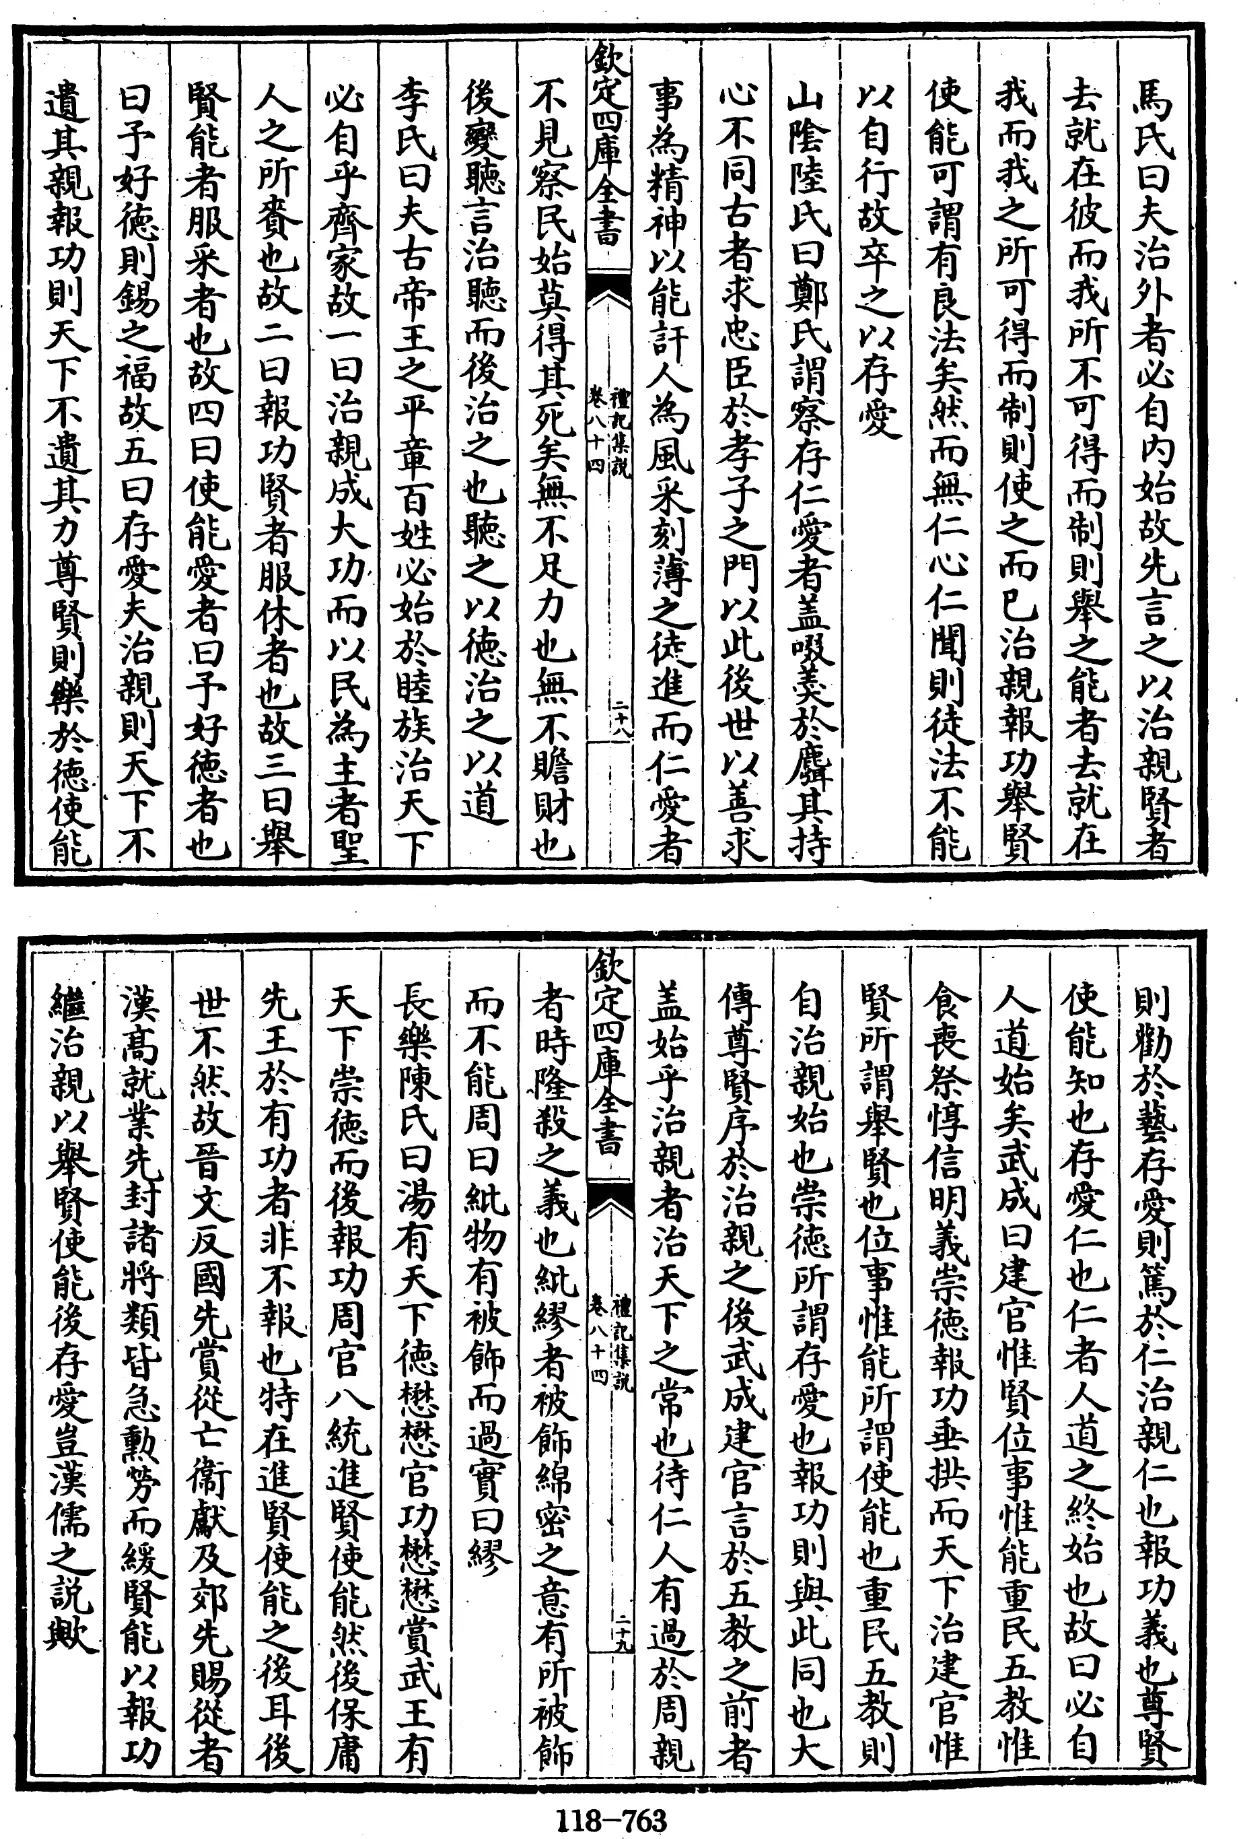 馬氏曰夫治外者必自内始故先言之以治親賢者
去就在彼而我所不可得而制則舉之能者去就在
我而我之所可得而制則使之而已治親報功舉賢
使能可謂有良法矣然而無仁心仁聞則徒法不能
以自行故卒之以存愛
山隂陸氏曰鄭氏謂察存仁愛者盖啜羮於麑其持
心不同古者求忠臣於孝子之門以此後世以善求
事為精神以能訐人為風采刻薄之徒進而仁愛者
欽定四庫全書
禮記集説
卷八十四
二十八
不見察民始莫得其死矣無不足力也無不贍財也
後變聽言治聽而後治之也聽之以徳治之以道
李氏曰夫古帝王之平章百姓必始於睦族治天下
必自乎齊家故一曰治親成大功而以民為主者聖
人之所賚也故二曰報功賢者服休者也故三曰舉
賢能者服采者也故四曰使能愛者曰予好徳者也
曰予好徳則錫之福故五曰存愛夫治親則天下不
遺其親報功則天下不遺其力尊賢則樂於徳使能
則勸於藝存愛則篤於仁治親仁也報功義也尊賢
使能知也存愛仁也仁者人道之終始也故曰必自
人道始矣武成曰建官惟賢位事惟能重民五教惟
食喪祭惇信明義崇徳報功垂拱而天下治建官惟
賢所謂舉賢也位事惟能所謂使能也重民五教則
自治親始也崇徳所謂存愛也報功則與此同也大
傳尊賢序於治親之後武成建官言於五教之前者
盖始乎治親者治天下之常也待仁人有過於周親
欽定四庫全書
禮記集説
卷八十四
二十九
者時隆殺之義也紕繆者被飾綿密之意有所被飾
而不能周曰紕物有被飾而過實曰繆
長樂陳氏曰湯有天下徳懋懋官功懋懋賞武王有
天下崇徳而後報功周官八統進賢使能然後保庸
先王於有功者非不報也特在進賢使能之後耳後
世不然故晉文反國先賞從亡衞獻及郊先賜從者
漢髙就業先封諸將類皆急勲勞而緩賢能以報功
繼治親以舉賢使能後存愛豈漢儒之説歟
118-763